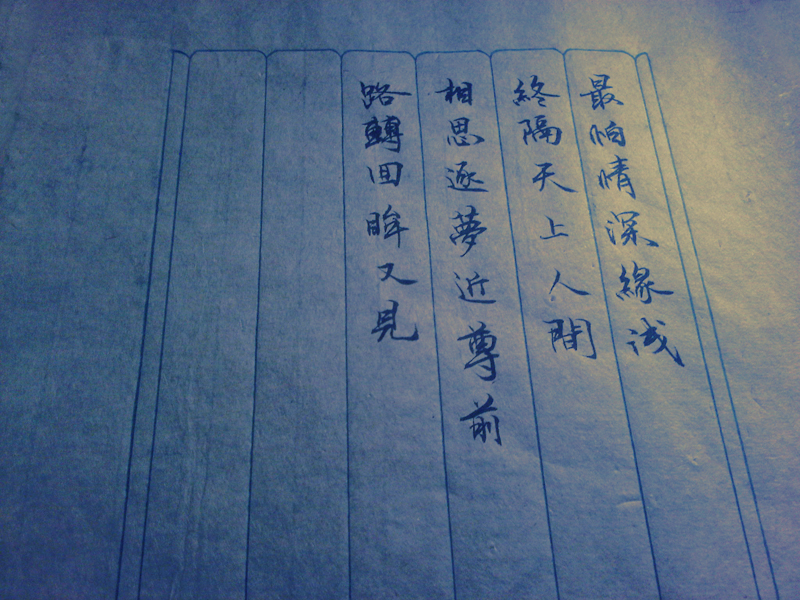 最怕情深緣淺
終隔天上人間
相思逐夢近尊前
路轉回眸又見